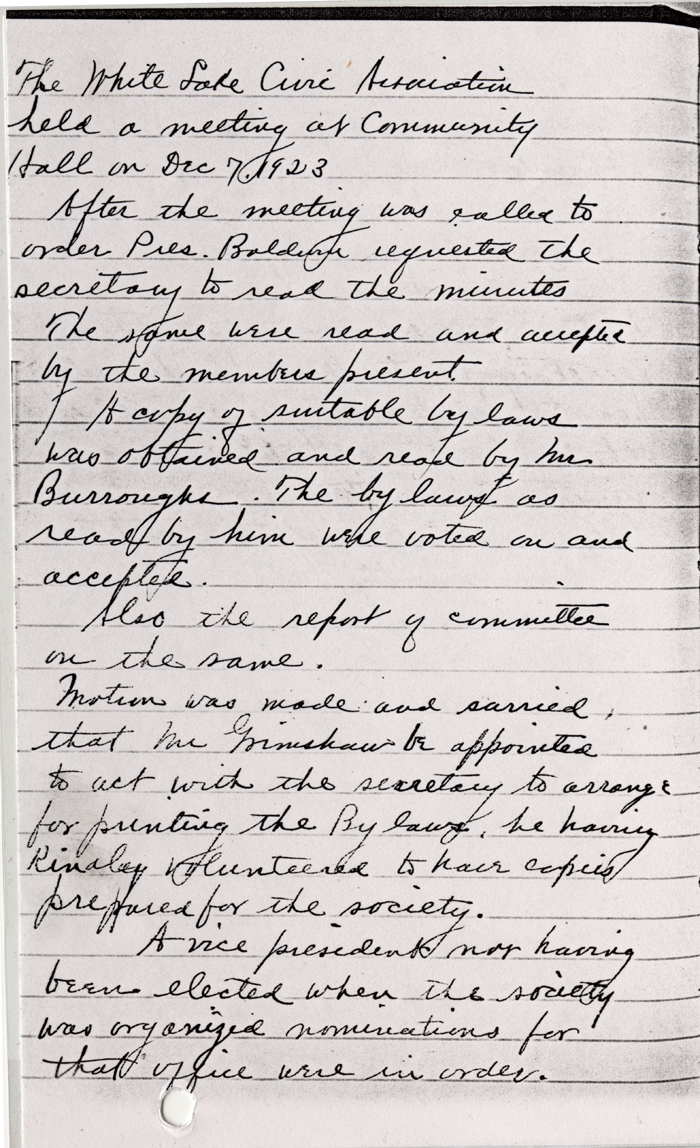 The White Lake Civic Association
held a meeting at Community
Hall on Dec 7, 1923
After the meeting was called to
order Pres. Baldwin requested the
secretary to read the minutes
The same were read and accepted
by the members present.
A copy of suitable by laws
was obtained and read by Mr
Burroughs. The by laws as
read by him were voted on and
accepted.
Also the report of committee
on the same.
Motion was made and carried,
that Mr Grimshaw be appointed
to act with the secretary to arrange
for printing the By laws, he having
kindley volunteered to have copies
prepared for the society.
A vice president not having
been elected when the society
was organized nominations for
that office were in order.